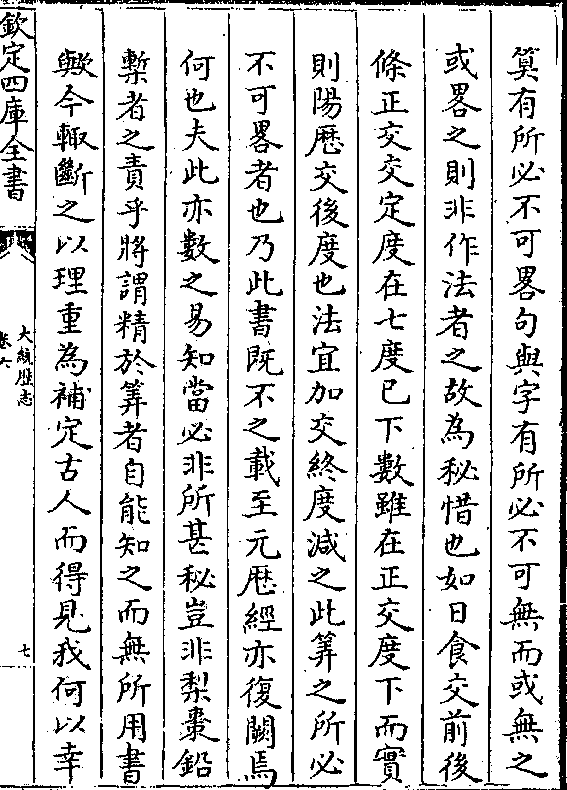 筭有所必不可畧句與字有所必不可無而或無之
或畧之則非作法者之故為秘惜也如日食交前後
條正交交定度在七度已下數雖在正交度下而實
則陽厯交後度也法宜加交終度減之此筭之所必
不可畧者也乃此書既不之載至元厯經亦復闕焉
何也夫此亦數之易知當必非所甚秘豈非梨棗鉛
槧者之責乎將謂精於筭者自能知之而無所用書
歟今輙斷之以理重為補定古人而得見我何以幸
欽定四庫全書
大統厯志
卷六
七